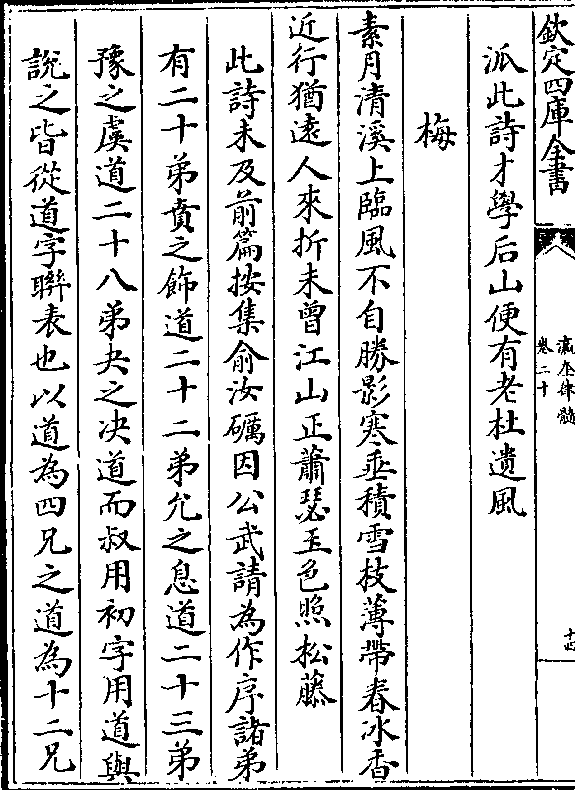 欽定四庫全書
瀛奎律髓
卷二十
十四
派此詩才學后山便有老杜遺風
梅
素月清溪上臨風不自勝影寒垂積雪枝薄帶春冰香
近行猶遠人來折未曾江山正蕭瑟玉色照松藤
此詩未及前篇按集俞汝礪因公武請為作序諸弟
有二十弟賁之飾道二十二弟允之息道二十三弟
豫之虞道二十八弟夬之決道而叔用初字用道與
說之皆從道字聯表也以道為四兄之道為十二兄